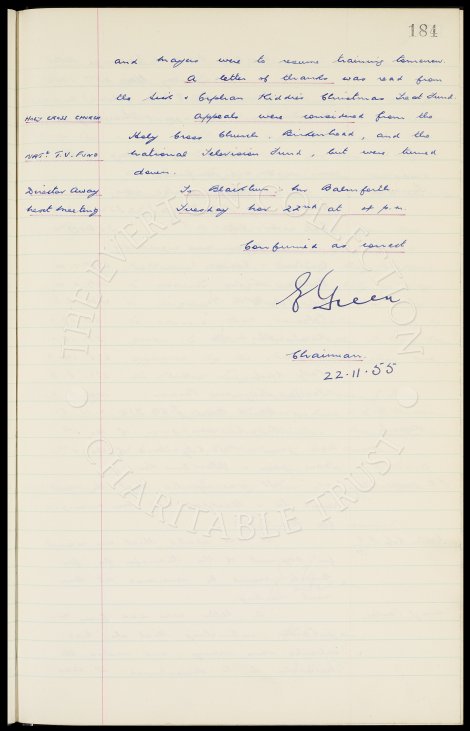 184
and players were to resume training tomorrow.
A letter of thanks was read from
the Sick & Orphan Kiddies Christmas Treat Fund.
HOLY CROSS CHURCH Appeals were considered from the
Holy Cross Church, Birkenhead, and the
NATL T.V. FUND National Television Fund, but were turned
down.
Director Away To Blackburn - Mr Balmforth.
Next Meeting Tuesday Nov 22nd at 4 p.m.
Confirmed as correct
E Green
Chairman.
22.11.55
THE EVERTON COLLECTION
CHARITABLE TRUST